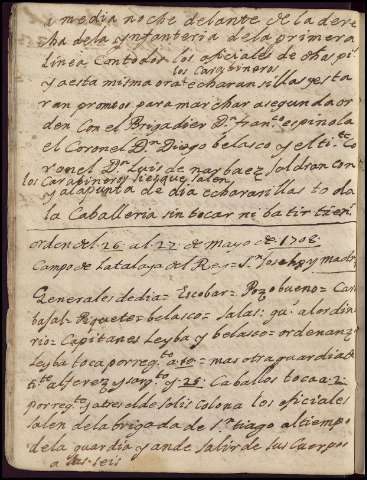 a media noche delante de la dere
cha de la ynfanteria de la primera
linea Con todos los oficiales de dhas pi.
los Carabineros
y a esta misma ora echaran sillas y esta
ran promtos para marchar a segunda or
den Con el Brigadier Dn. franco. espinola
el Coronel Dn. Diego belasco y el tte. Co
ronel Dn. Luis de narbaez saldran con
los Carabineros siesque salen
y a la punta de dia echaran sillas toda
la Caballeria sin tocar ni batir tien.
orden del 26 al 27 de mayo de 1706
Campo de la talaya del Rey = Sn. Joseph y madrid
Generales de dia = Escobar = Pozobueno = Car
bajal = Piquetes = belasco = salas = ga. al ordin
rio = Capitanes Leyba y belasco = ordenanza
Leyba toca por regto. a 10 = mas otra guardia de
tte. alferez y sargto. y 25. Caballos toca a 2
por regto. y atres el de solis Colona los oficiales
salen de la brigada de Sn. tiago al tiempo
de la guardia y an de salir de sus Cuerpos
a las seis